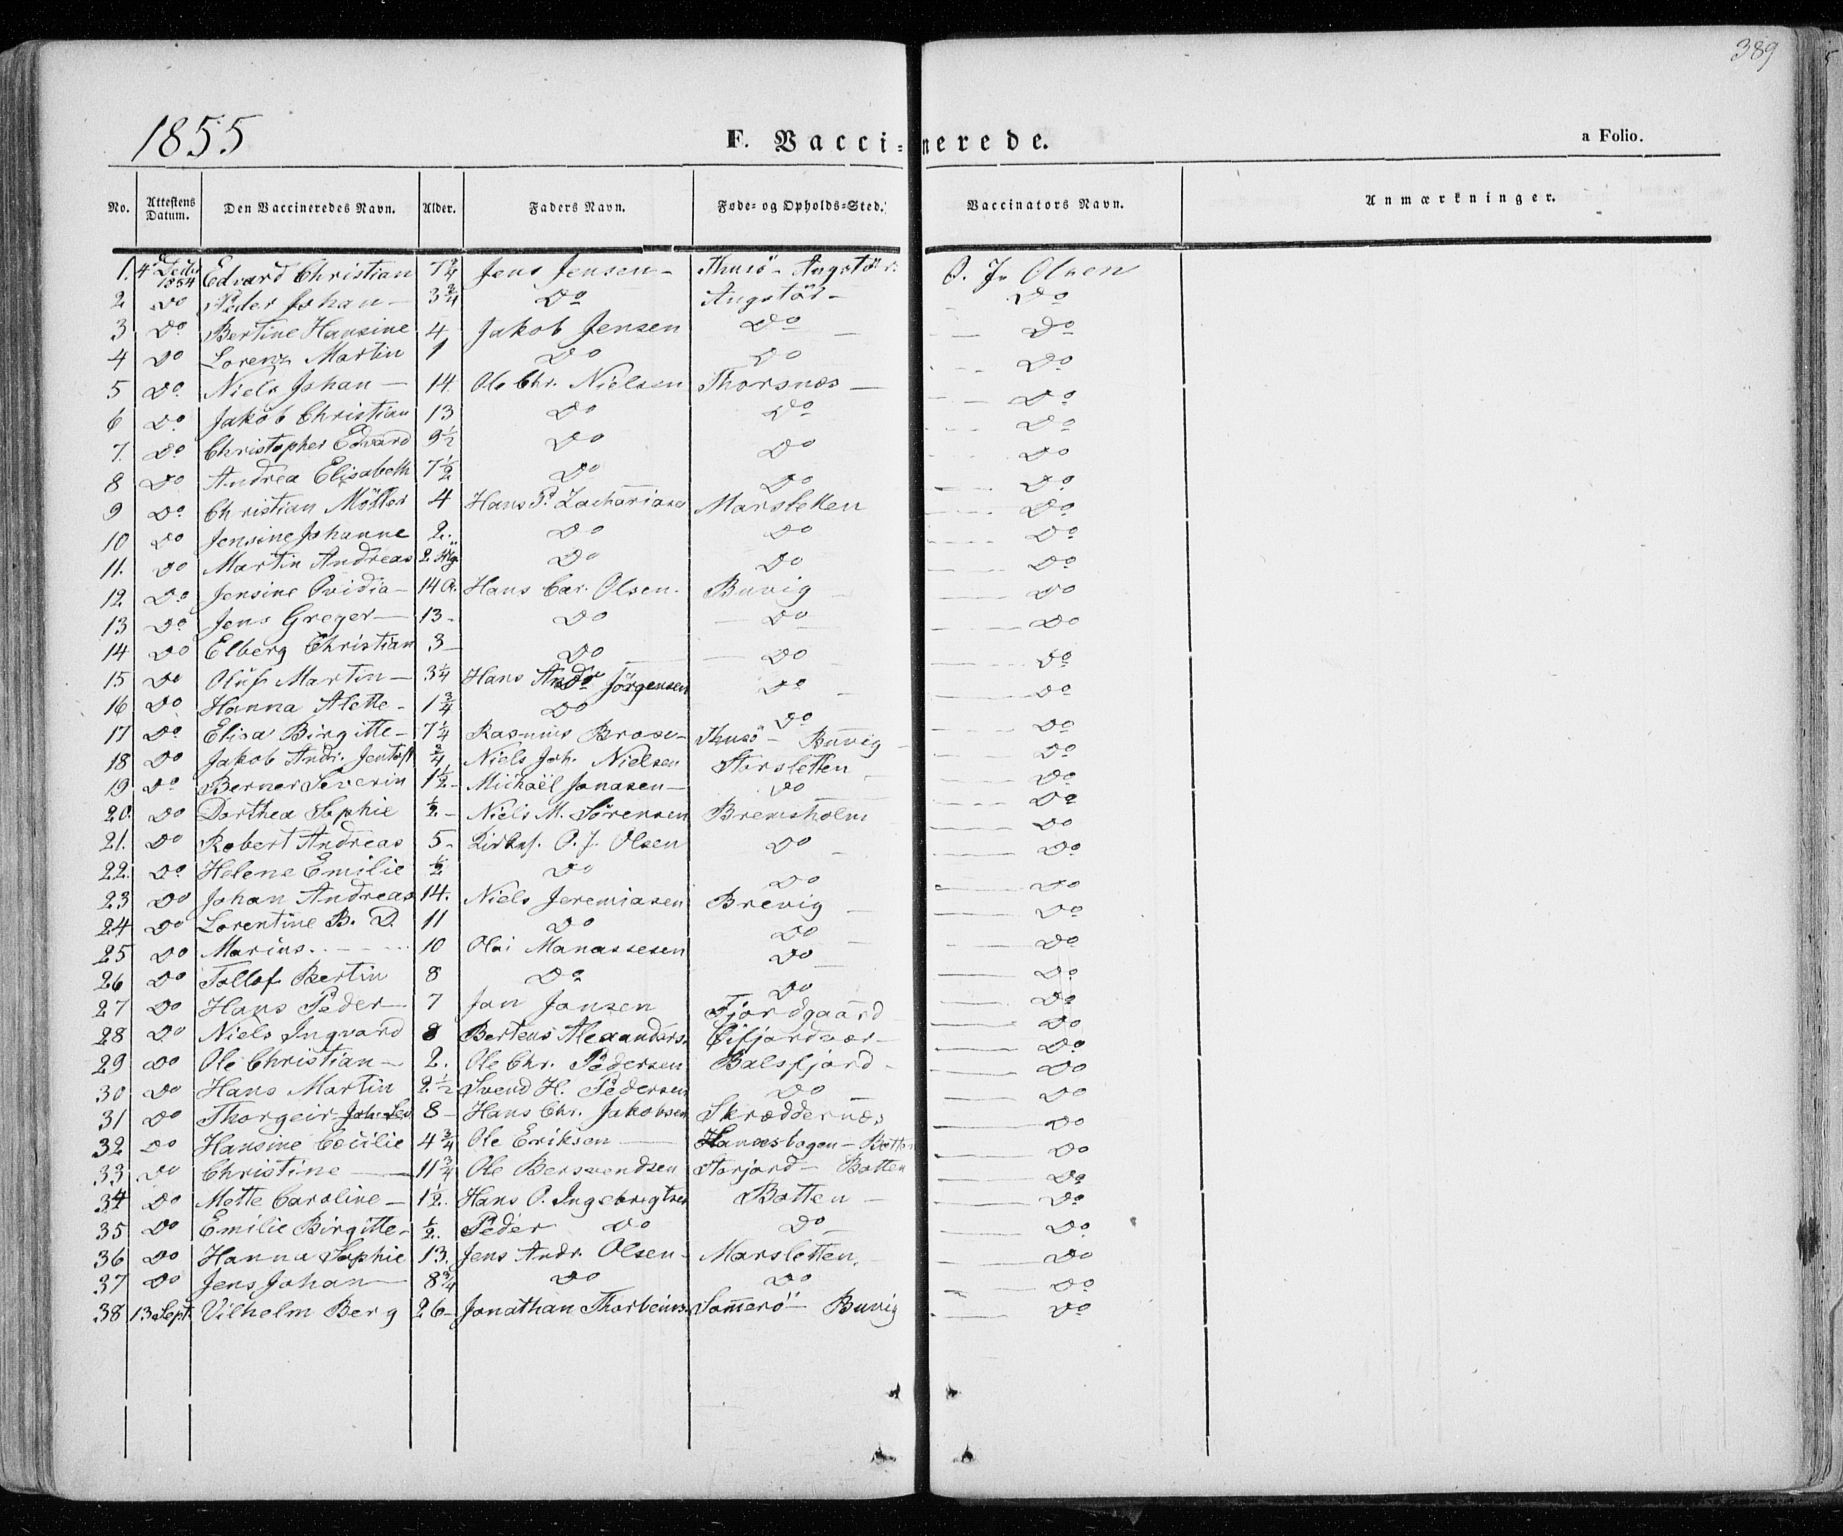 389
1855
F. Vaccinerede.
a Folio.
No. Attestens Datum. Den Vaccineredes Navn. Alder. Faders Navn. Føde- og Opholds-Sted. Vaccinators Navn. Anmærkninger.
1. 4 Decbr 1854 Edvard Christian 7 3/4 Jens Jensen - Thusö - Angstöd O. J. Olsen
2 Do Peder Johan - 3 3/4 Do Angstöd - Do
3 Do Bertine Hansine 4 Jakob Jensen Do - Do
4 Do Lorenz Martin 1 Do Do Do
5 Do Niels Johan - 14 Ole Chr. Nielsen Thorsnæs - Do
6 Do Jakob Christian 13 Do Do Do
7. Do Christopher Edvard 9 1/2 Do Do Do
8 Do Andrea Elisabeth 7 1/2 Do Do Do
9 Do Christian Möller 4 Hans P. Zachariasen Marsletten Do
10 Do Jensine Johanne 2. Do Do Do
11. Do Martin Andreas 2 Do Do Do
12. Do Jensine Ovidia - 14 A. Hans Car. Olsen. Buvig - Do
13 Do Jens Greger - 13 - Do Do Do
14 Do Elberg Christian 3 - Do Do Do
15 Do Oluf Martin - 3 1/4 Hans Andr Jörgensen Do Do
16 Do Hanna Alette - 1 3/4 Do Do Do
17 Do Elisa Birgitte - 7 1/4 Rasmus Brose - Thusö - Buvig Do
18 Do Jakob Andr. Jentoft 3/4 Niels Joh. Nielsen Storsletten Do
19 Do Berner Severin 1 1/2 - Michaël Jonasen - Do Do
20. Do Dorthea Sophie 1/2 - Niels M. Sörensen Bremsholm Do
21. Do Robert Andreas 5 - Kirks. O. J. Olsen Do - Do
22. Do Helene Emilie 1/2 Do Do Do
23 Do Johan Andreas 14. Niels Jeremiasen Brevig - Do
24 Do Lorentine B. D. 11 Do Do Do
25 Do Marius. 10 Olai Manassesen Do Do
26 Do Tollof Bertin 8 Do Do Do
27 Do Hans Peder 7 Jan Jansen Fjordgaard Do
28 Do Niels Ingvard 8 Berteus Alexanders. Öifjordvær - Do
29 Do Ole Christian - 2. Ole Chr. Pedersen Balsfjord - Do
30 Do Hans Martin 2 1/2 Svend H. Pedersen Do Do
31 Do Thorgeir 8 - Hans Chr. Jakobsen Skræddernæs Do
32 Do Hansine Cecilie 4 3/4 Ole Eriksen - - Botten Do
33 Do Christine - 11 3/4 Ole Bersvendsen Storjord - Botten Do
34 Do Mette Caroline - 1 1/2. Hans O. Ingebrigtsen Botten - Do
35 Do Emilie Birgitte - 1/2. Peder Do Do - Do
36 Do Hanna Sophie 13. Jens Andr. Olsen - Marsletten. Do
37 Do Jens Johan - 8 3/4 Do Do Do
38 13 Sept. Vilhelm Berg 26 - Jonathan Thorbeins. Somerö - Buvig Do